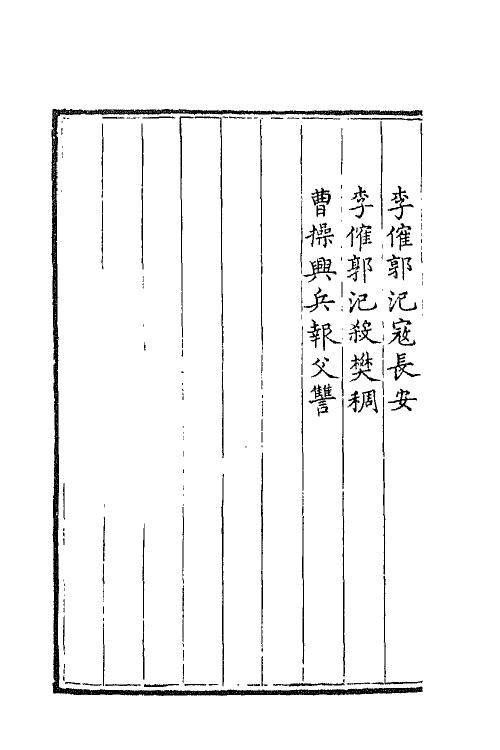 李傕郭汜寇長安
李傕郭汜殺樊稠
曹操興兵報父讐